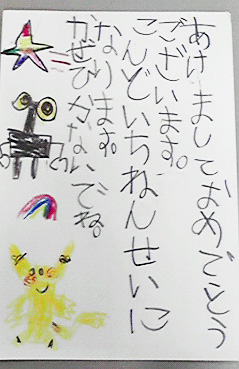 あけましておめでとう
ございます。
こんどいちねんせいに
なります。
かぜひかないでね。